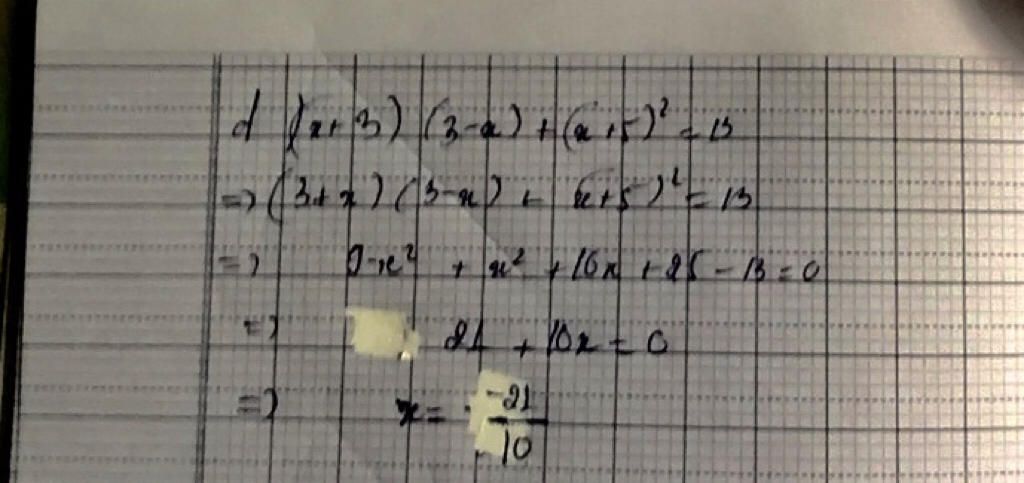 d (x+3) (3-x) + (x+5)² = 13
=> (3+x) (3-x) + (x+5)² = 13
=> 9-x² + x² + 10x + 25 - 13 = 0
=> 21 + 10x = 0
=> x = -21/10